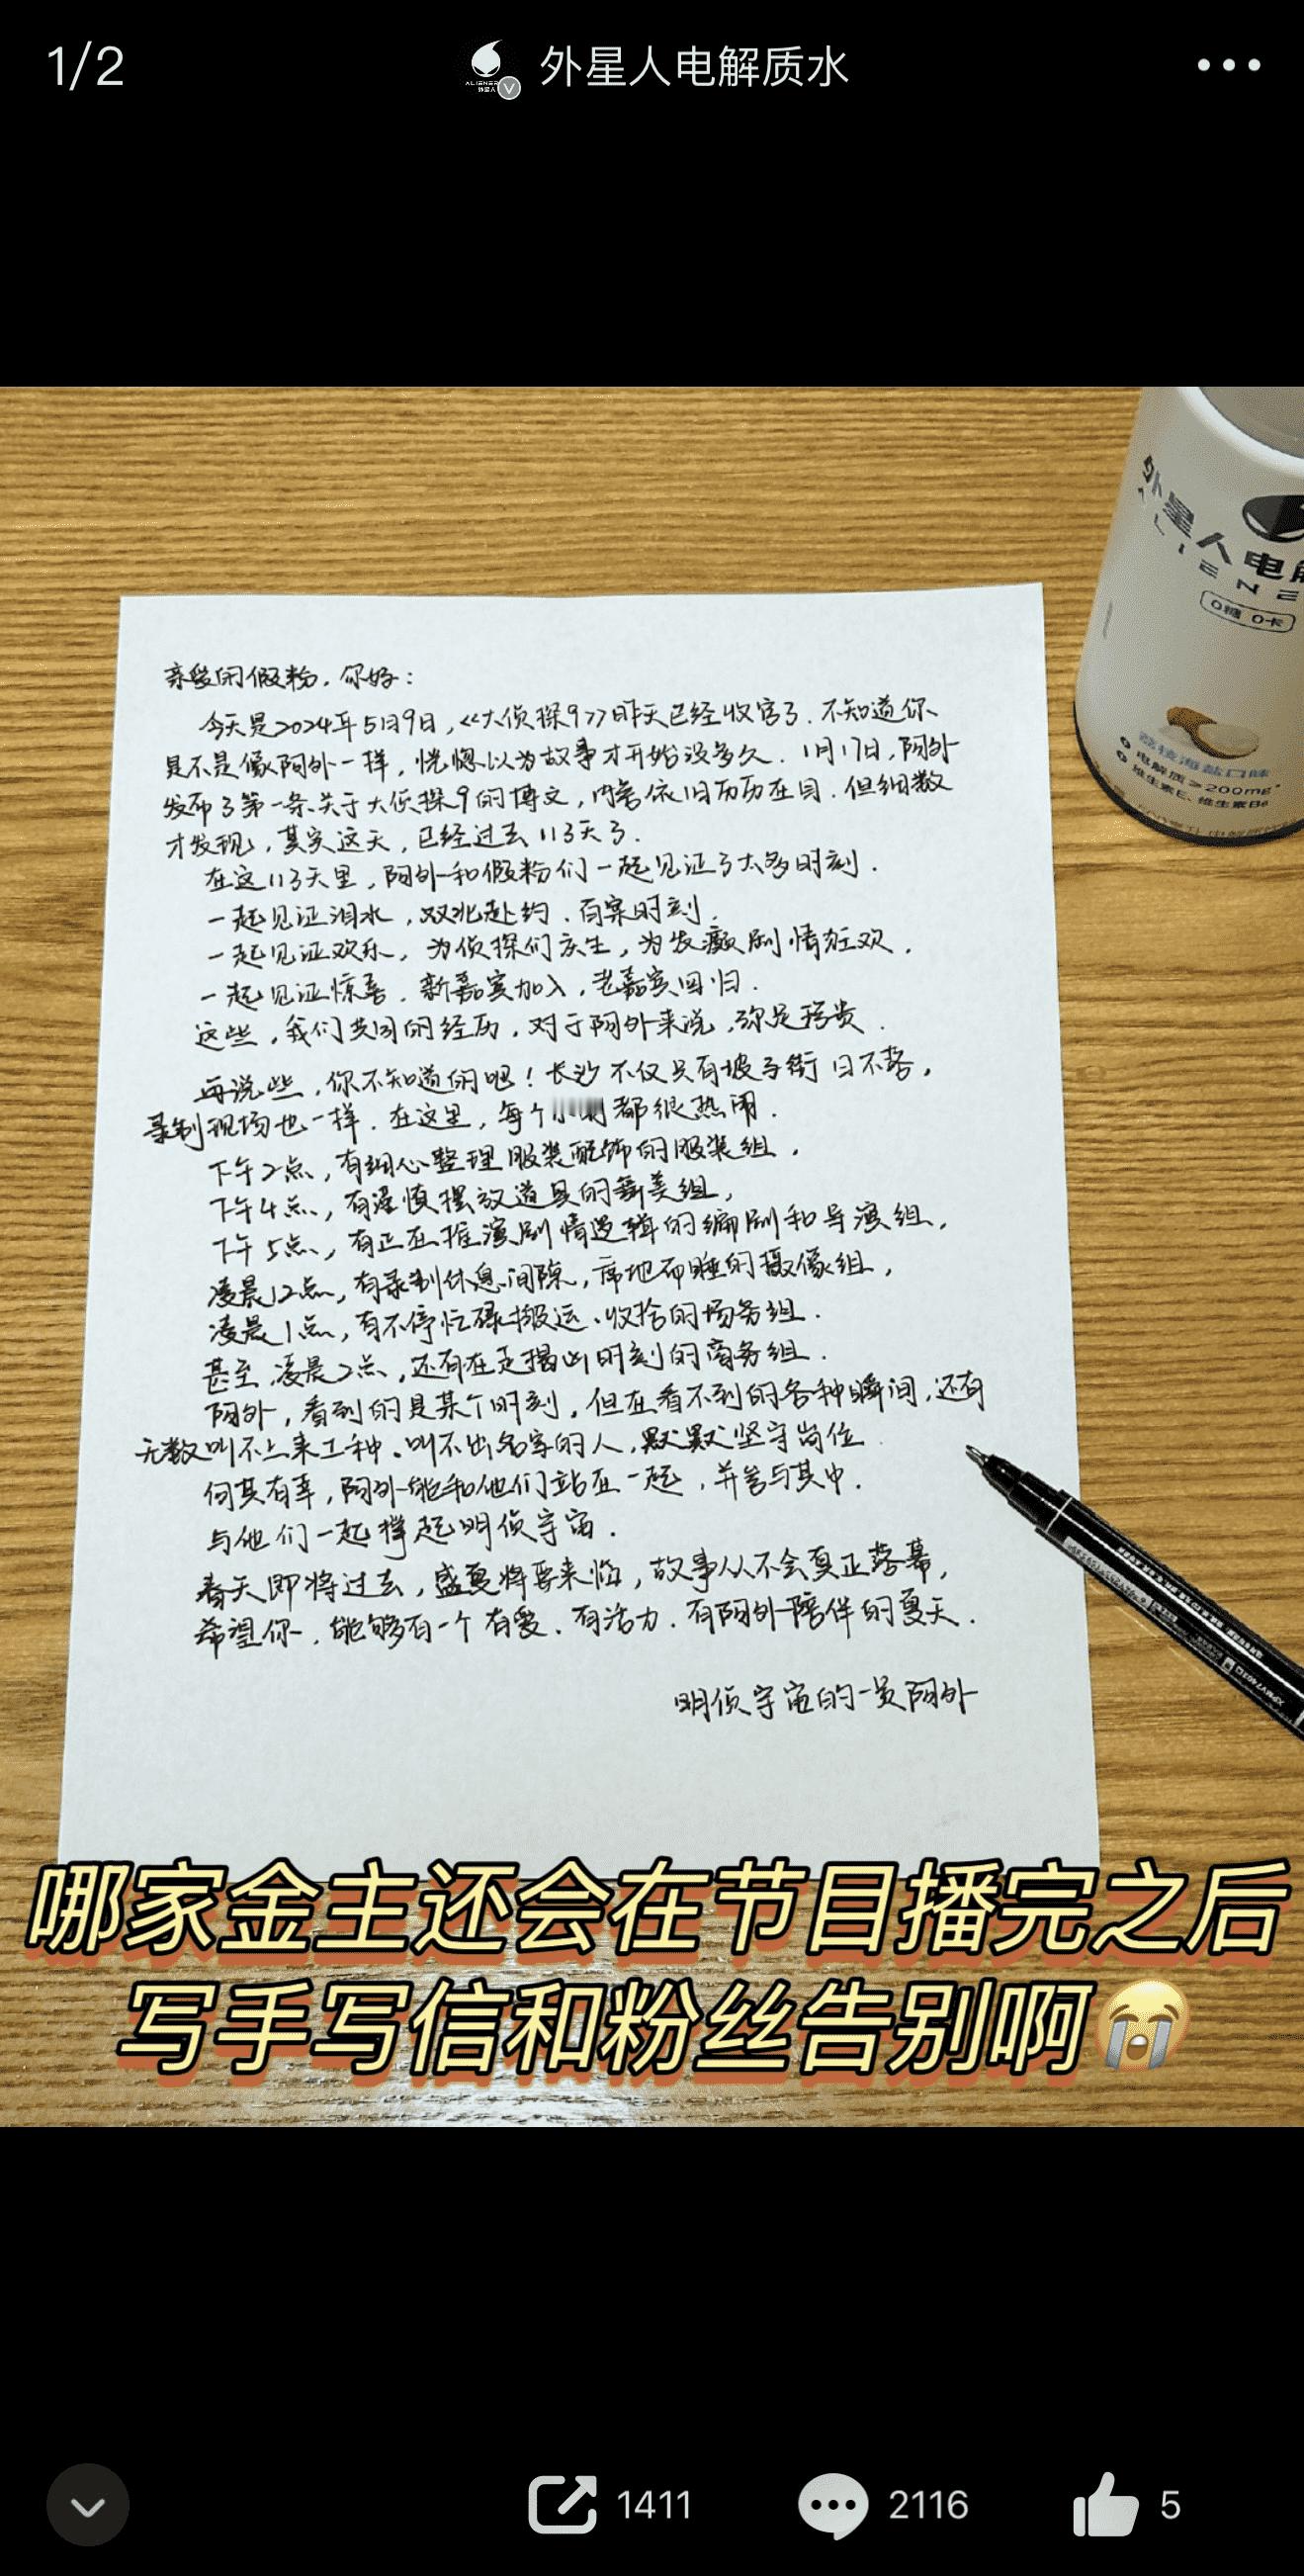 1/2
外星人电解质水
外星人电解
ALIENE
0糖 0卡
荔枝海盐口味
电解质≥200mg*
维生素E、维生素B6
亲爱的假粉，你好：
今天是2024年5月9日，《大侦探9》昨天已经收官了．不知道你
是不是像阿外一样，恍惚以为故事才开始没多久．1月17日，阿外
发布了第一条关于大侦探9的博文，内容依旧历历在目．但细数
才发现，其实这天，已经过去113天了．
在这113天里，阿外和假粉们一起见证了太多时刻．
一起见证泪水，双北赴约、百案时刻．
一起见证欢乐，为侦探们庆生，为发癫剧情狂欢．
一起见证惊喜．新嘉宾加入，老嘉宾回归．
这些，我们共同的经历，对于阿外来说，弥足珍贵．
再说些，你不知道的吧！长沙不仅只有坡子街日不落，
录制现场也一样．在这里，每个小时都很热闹．
下午2点，有细心整理服装配饰的服装组，
下午4点，有谨慎摆放道具的舞美组，
下午5点，有正在推演剧情逻辑的编剧和导演组，
凌晨12点，有录制休息间隙，席地而睡的摄像组，
凌晨1点，有不停忙碌搬运、收拾的场务组．
甚至凌晨2点，还有在走揭凶时刻的商务组．
阿外，看到的是某个时刻，但在看不到的各种瞬间，还有
无数叫不上来工种、叫不出名字的人，默默坚守岗位．
何其有幸，阿外能和他们站在一起，并参与其中．
与他们一起撑起明侦宇宙．
春天即将过去，盛夏将要来临，故事从不会真正落幕，
希望你，能够有一个有爱、有活力、有阿外陪伴的夏天．
明侦宇宙的一员阿外
哪家金主还会在节目播完之后
写手写信和粉丝告别啊😭
1411
2116
5